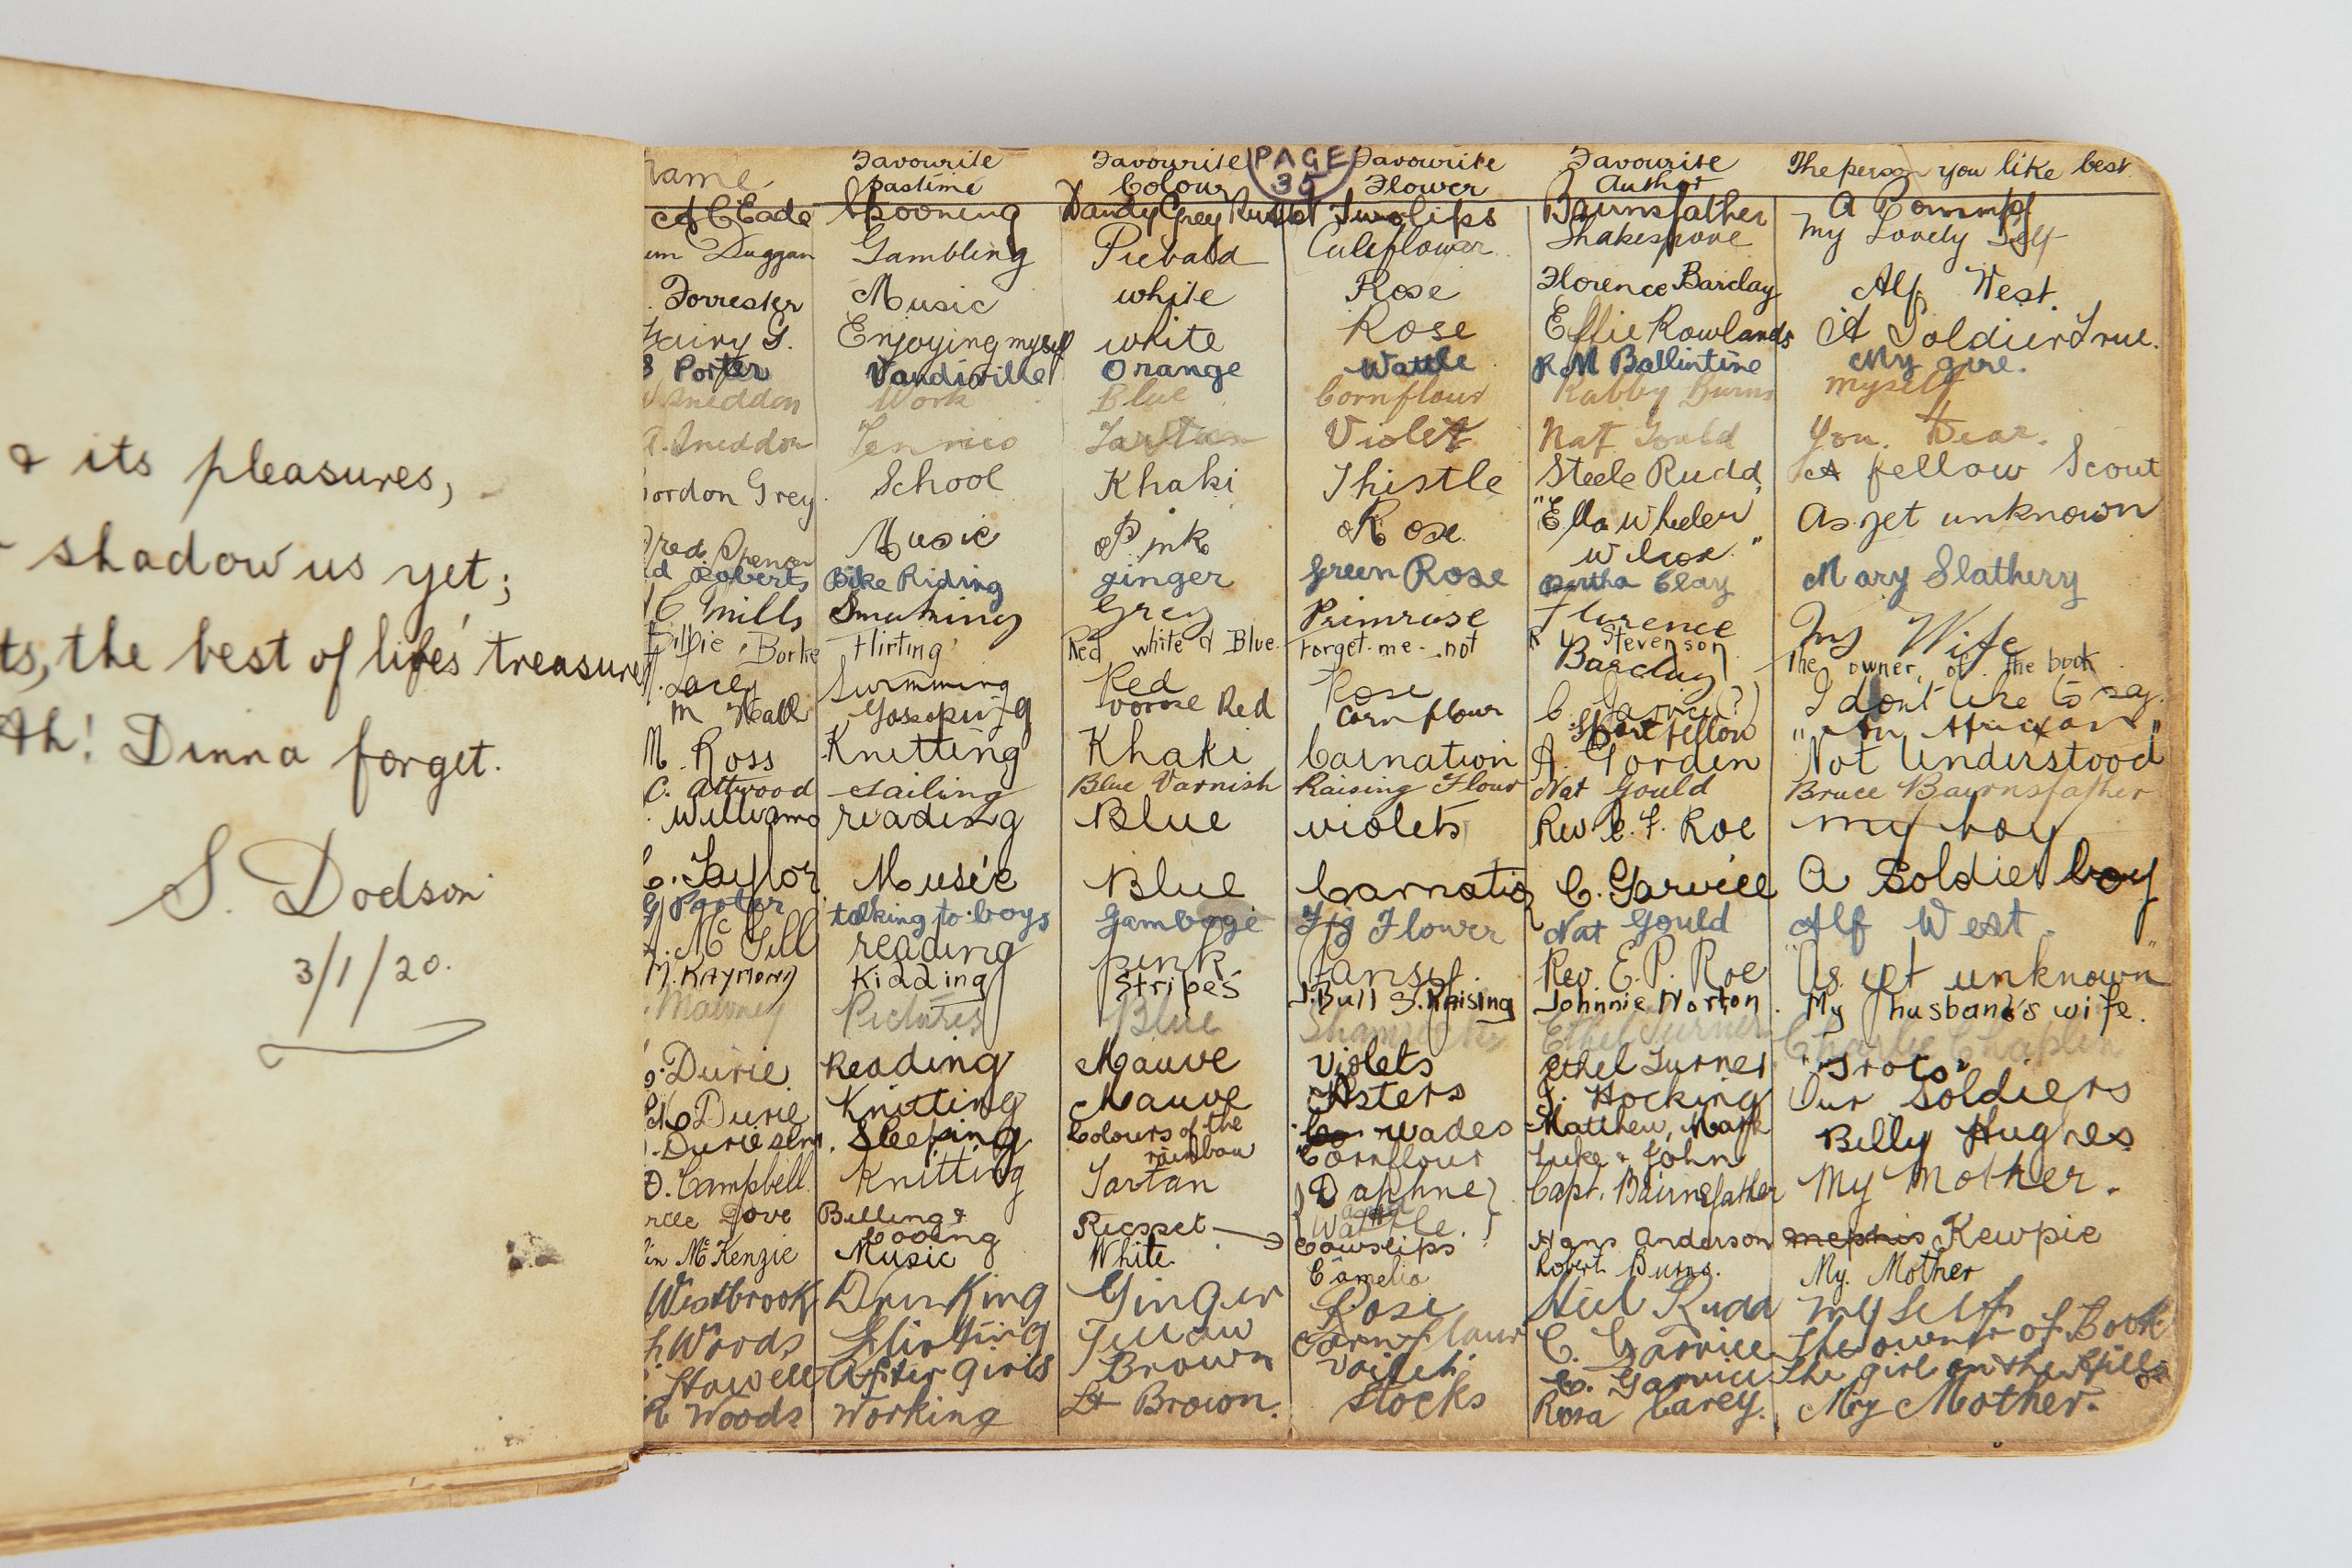 & its pleasures,
shadow us yet;
ts, the best of life's treasure
Ah! Dinna forget.
S. Dodson
3/1/20.
PAGE 35
name Favourite pastime Favourite Colour Favourite Flower Favourite Author The person you like best
Eade Spooning Dandy Grey Russet Twolips Bairnsfather A Pommy
Duggan Gambling Piebald Culiflower Shakespore My Lovely Self
Forrester Music white Rose Florence Barclay Alf West.
Fairy G. Enjoying myself white Rose Effie Rowlands A Soldier True.
Porter Vaudiville Orange Wattle R M Ballintine My girl.
Sneddon Work Blue Cornflour Rabby Burns myself
A. Sneddon Tennis Tartan Violet Nat Gould You. Dear.
ordon Grey. School Khaki Thistle Steele Rudd, A fellow Scout
Music Pink Rose "Ella Wheeler Wilcox." As yet unknown
d Roberts Bike Riding ginger Green Rose Bertha Clay Mary Slathery
C Mills Smuning Grey Primrose Florence Barclay My Wife
Billie Borke Flirting Red white & Blue. Forget-me-not R L Stevenson The owner, of the book
Lacey Swimming Red Rose C. Garvice (?) I don't like to say.
M Heall Gossoping worse Red Corn flour Short fellow "An African"
M. Ross Knitting Khaki Carnation A. Gorden Not Understood
C. Attwood Sailing Blue Varnish Raising Flour Nat Gould Bruce Bairnsfather
Williams reading Blue violets Rev E. P. Roe my boy
C. Taylor Music Blue Carnatio C. Garvice A Soldier boy
G Porter talking to boys Gamboge Fig Flower Nat Gould Alf West.
A. McGill reading pink Pansy. Rev. E. P. Roe "As yet unknown"
M. RAYMOND Kidding Stripes J. Bull S. Raising Johnnie Norton. My husband's wife.
Mawney Pictures Blue Shamrocks Ethel Turner Charlie Chaplin
Durie Reading Mauve Violets Ethel Turner "Trots"
Durie Knitting Mauve Asters J. Hocking Our Soldiers
Durie senr. Sleeping Colours of the rainbow wades Cornflour Matthew, Mark Luke & John Billy Hughes
D. Campbell Knitting Tartan Daphne and Wattle. Capt. Bairnsfather My Mother.
rcie Dove Billing & Cooing Rüsset Cowslips Hans Anderson Kewpie
in McKenzie Music White Camelia Robert Burns. My Mother
Westbrook Drinking Ginger Rose Steel Rudd My Self
Woods Flirting Yellow Cornflour C. Garvice The owner of Book
Howell After girls Brown Voilets C. Garvice The girl on the Hills
R Woods Working Lt Brown. Stocks Rosa Carey. My Mother.